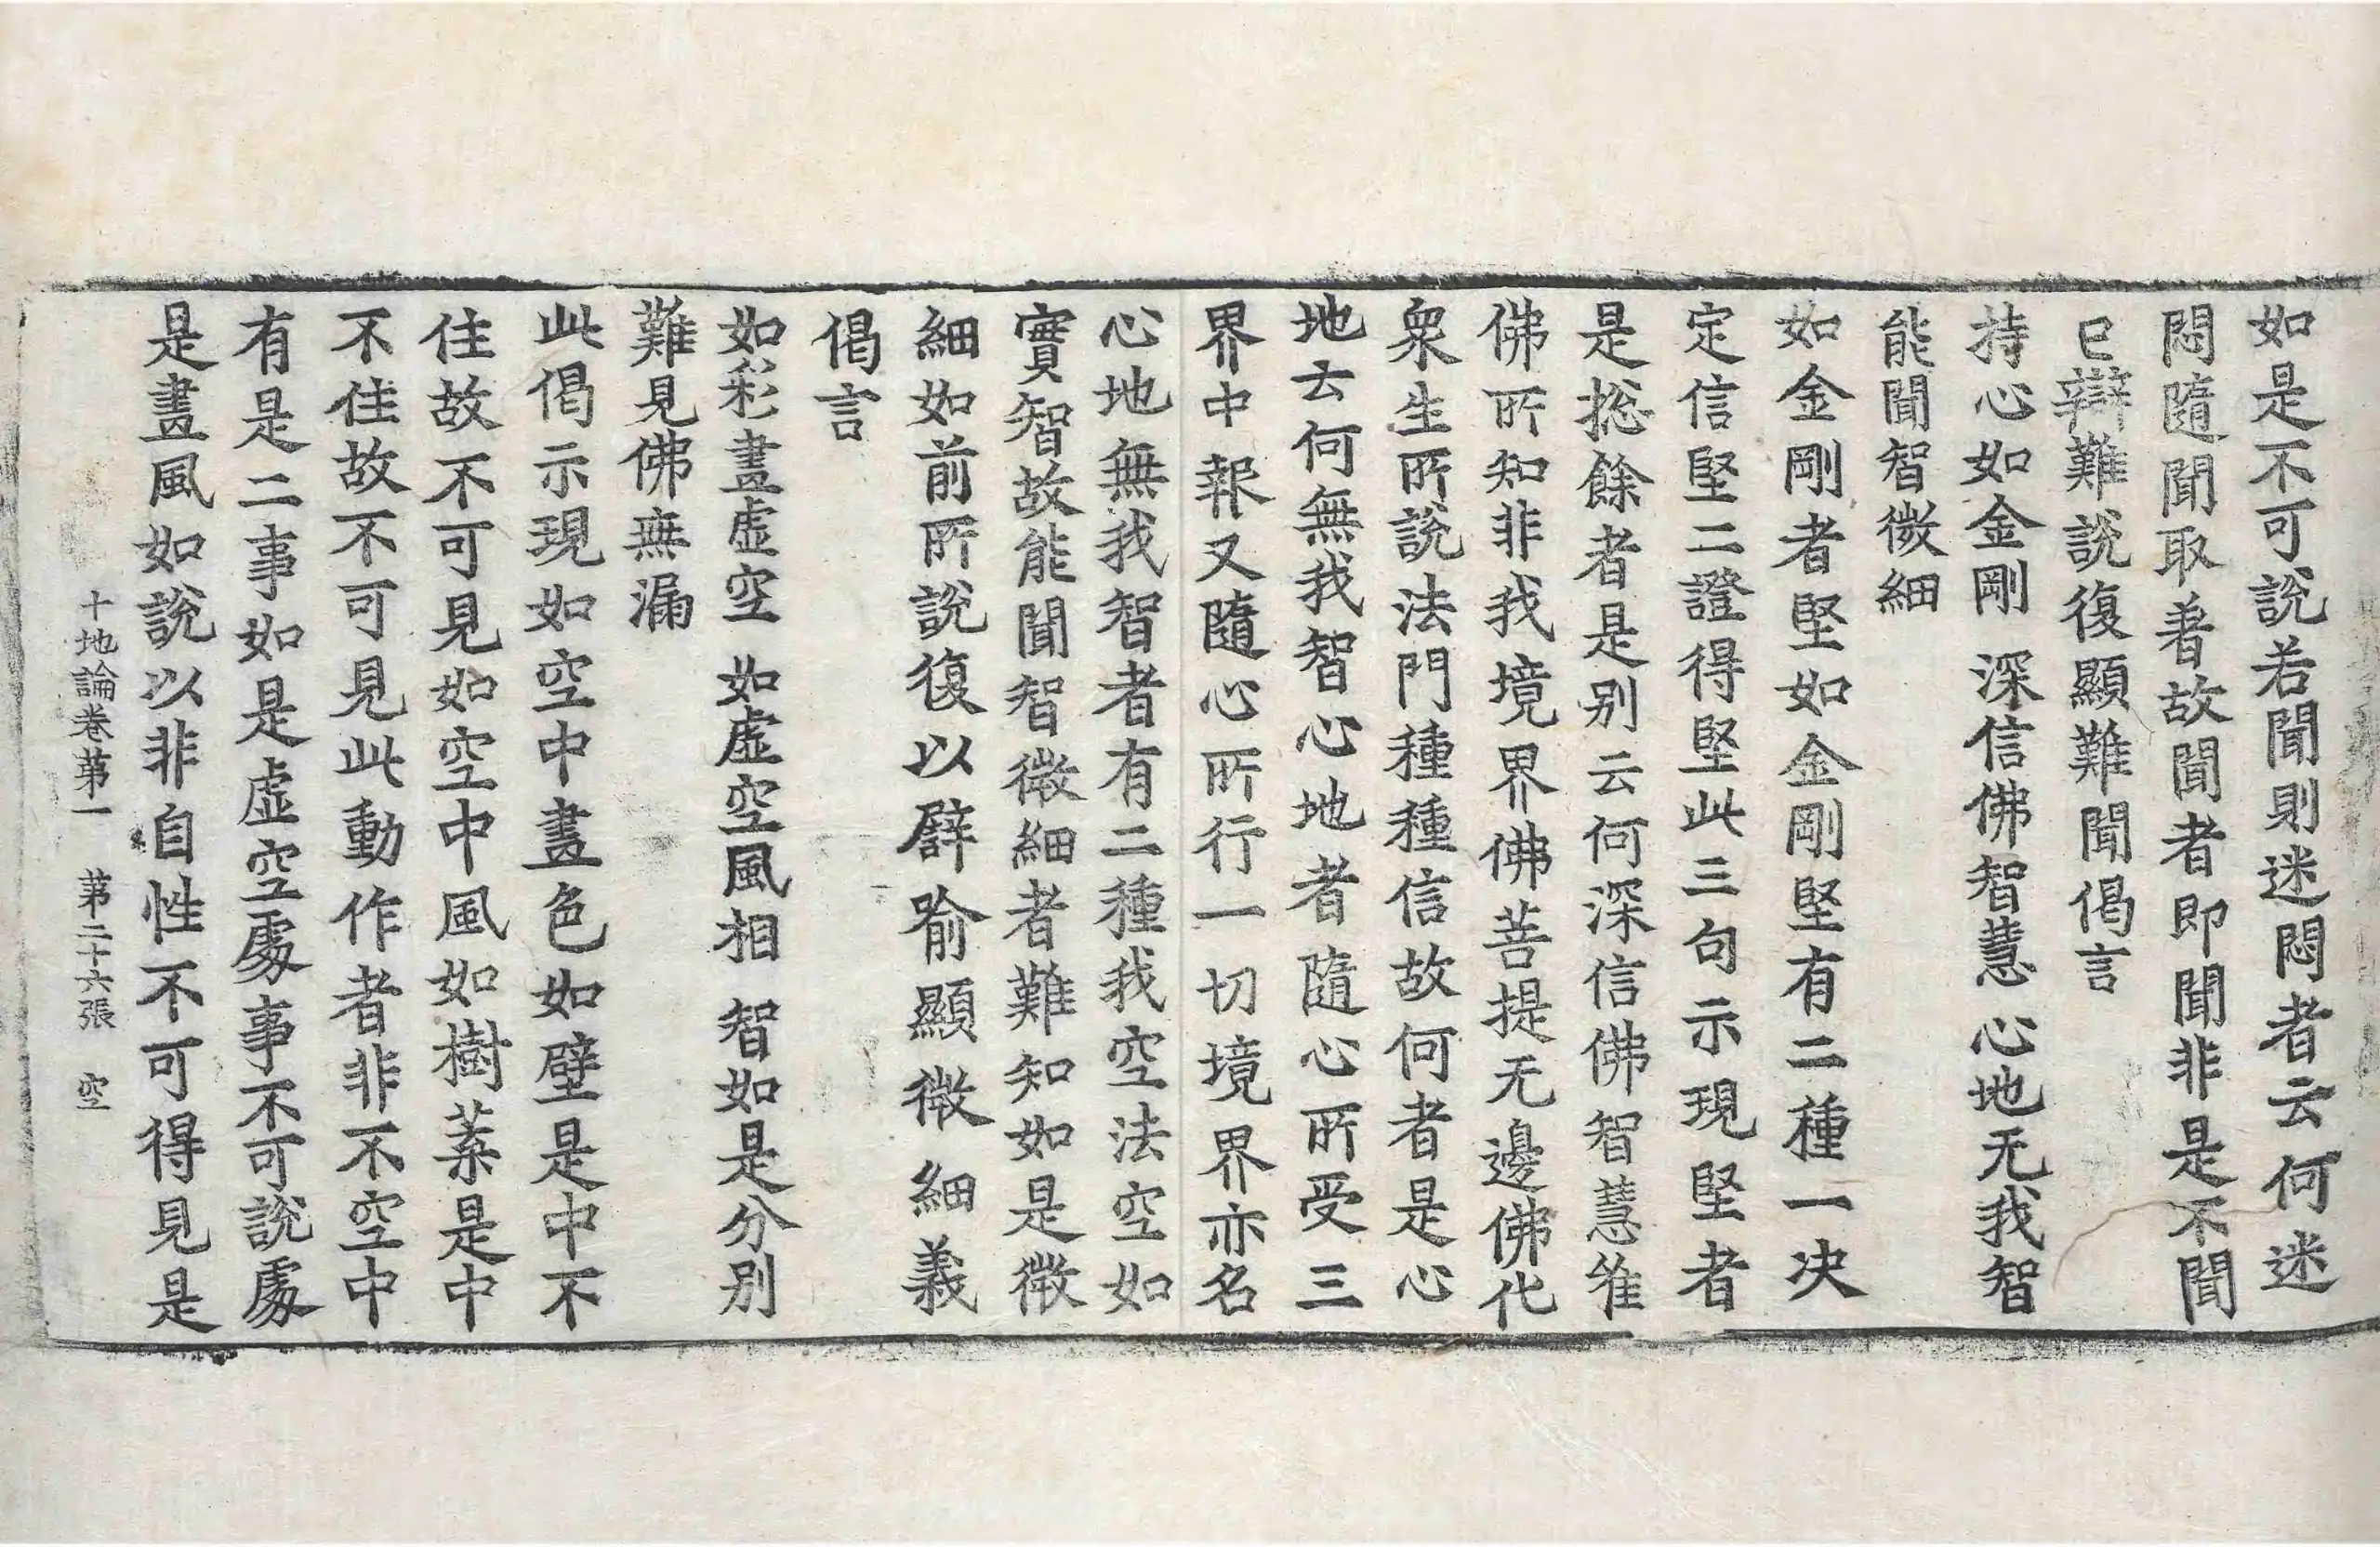 如是不可說若聞則迷悶者云何迷
悶隨聞取著故聞者即聞非是不聞
已辯難說復顯難聞偈言
持心如金剛　深信佛智慧　心地无我智
能聞智微細
如金剛者堅如金剛堅有二種一決
定信堅二證得堅此三句示現堅者
是捴餘者是别云何深信佛智慧唯
佛所知非我境界佛菩提无邊佛化
衆生所說法門種種信故何者是心
地云何無我智心地者隨心所受三
界中報又隨心所行一切境界亦名
心地無我智者有二種我空法空如
實智故能聞智微細者難知如是微
細如前所說復以譬喻顯微細義
偈言
如彩畫虛空　如虛空風相　智如是分别
難見佛無漏
此偈示現如空中畫色如壁是中不
住故不可見如空中風如樹葉是中
不住故不可見此動作者非不空中
有是二事如是虛空處事不可說處
是畫風如說以非自性不可得見是
十地論卷第一　第二十六張　空